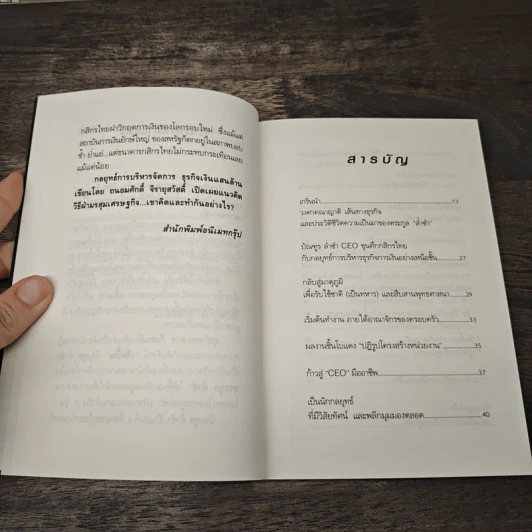 กสิกรไทยฝ่าวิกฤตการเงินของโลกรอบใหม่ ซึ่งแม้แต่
สถาบันการเงินยักษ์ใหญ่ ของสหรัฐก็ตกอยู่ในสภาพบอบ
ช้ำ ย่ำแย่...แต่ธนาคารกสิกรไทยไม่กระทบกระเทือนเลย
แม้แต่น้อย
กลยุทธ์การบริหารจัดการ ธุรกิจเงินแสนล้าน
เขียนโดย ถนอมศักดิ์ จิรายุสวัสดิ์ เปิดเผยแนวคิด
วิธีฝ่ามรสุมเศรษฐกิจ...เขาคิดและทำกันอย่างไร?
สำนักพิมพ์อนิเมทกรุ๊ป
สารบัญ
เกริ่นนำ 13
วงศาคณาญาติ เส้นทางธุรกิจ
และประวัติชีวิตความเป็นมาของตระกูล "ล่ำซำ"
บัณฑูร ล่ำซำ CEO ขุนศึกกสิกรไทย
กับกลยุทธ์การบริหารธุรกิจการเงินอย่างเหนือชั้น 27
กลับสู่มาตุภูมิ
เพื่อรับใช้ชาติ (เป็นทหาร) และสืบสานพุทธศาสนา 29
เริ่มต้นทำงาน ภายใต้อาณาจักรของครอบครัว 33
ผลงานชิ้นโบแดง "ปฏิรูปโครงสร้างหน่วยงาน" 35
ก้าวสู่ "CEO" มืออาชีพ 37
เป็นนักกลยุทธ์
ที่มีวิสัยทัศน์ และพลิกมุมมองตลอด 40